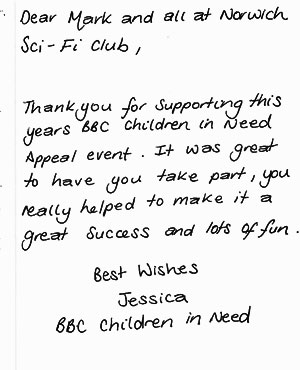 Dear Mark and all at Norwich
Sci-Fi Club,
Thankyou for Supporting this
years BBC Children in Need
Appeal event. It was great
to have you take part, you
really helped to make it a
great Success and lots of fun.
Best Wishes
Jessica
BBC Children in Need